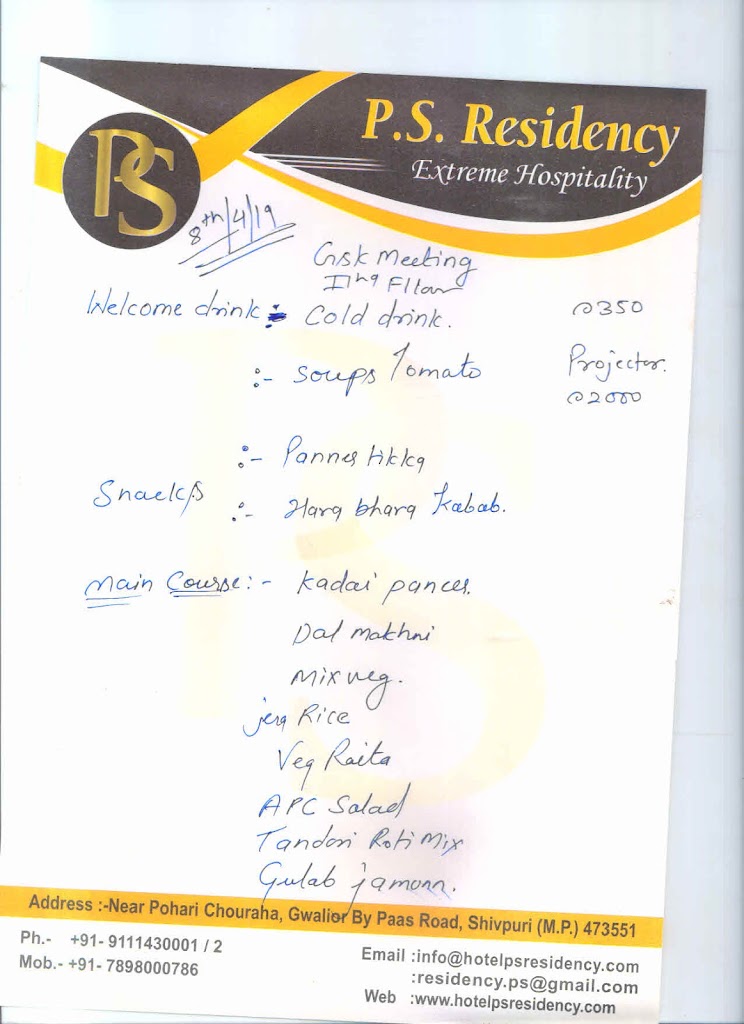 P.S. Residency
Extreme Hospitality
PS
8th/4/19
Gsk Meeting
IIng Flloor
Welcome drink :- Cold drink. @350
:- Soups Tomato Projector.
@2000
:- Panner tikka
Snacks
:- Hara bhara Kabab.
Main Course :- Kadai paneer.
Dal makhni
Mix veg.
jera Rice
Veg Raita
APC Salad
Tandori Roti Mix
Gulab jamonn.
Address :-Near Pohari Chouraha, Gwalior By Paas Road, Shivpuri (M.P.) 473551
Ph.- +91- 9111430001 / 2
Mob.- +91- 7898000786
Email :info@hotelpsresidency.com
:residency.ps@gmail.com
Web :www.hotelpsresidency.com